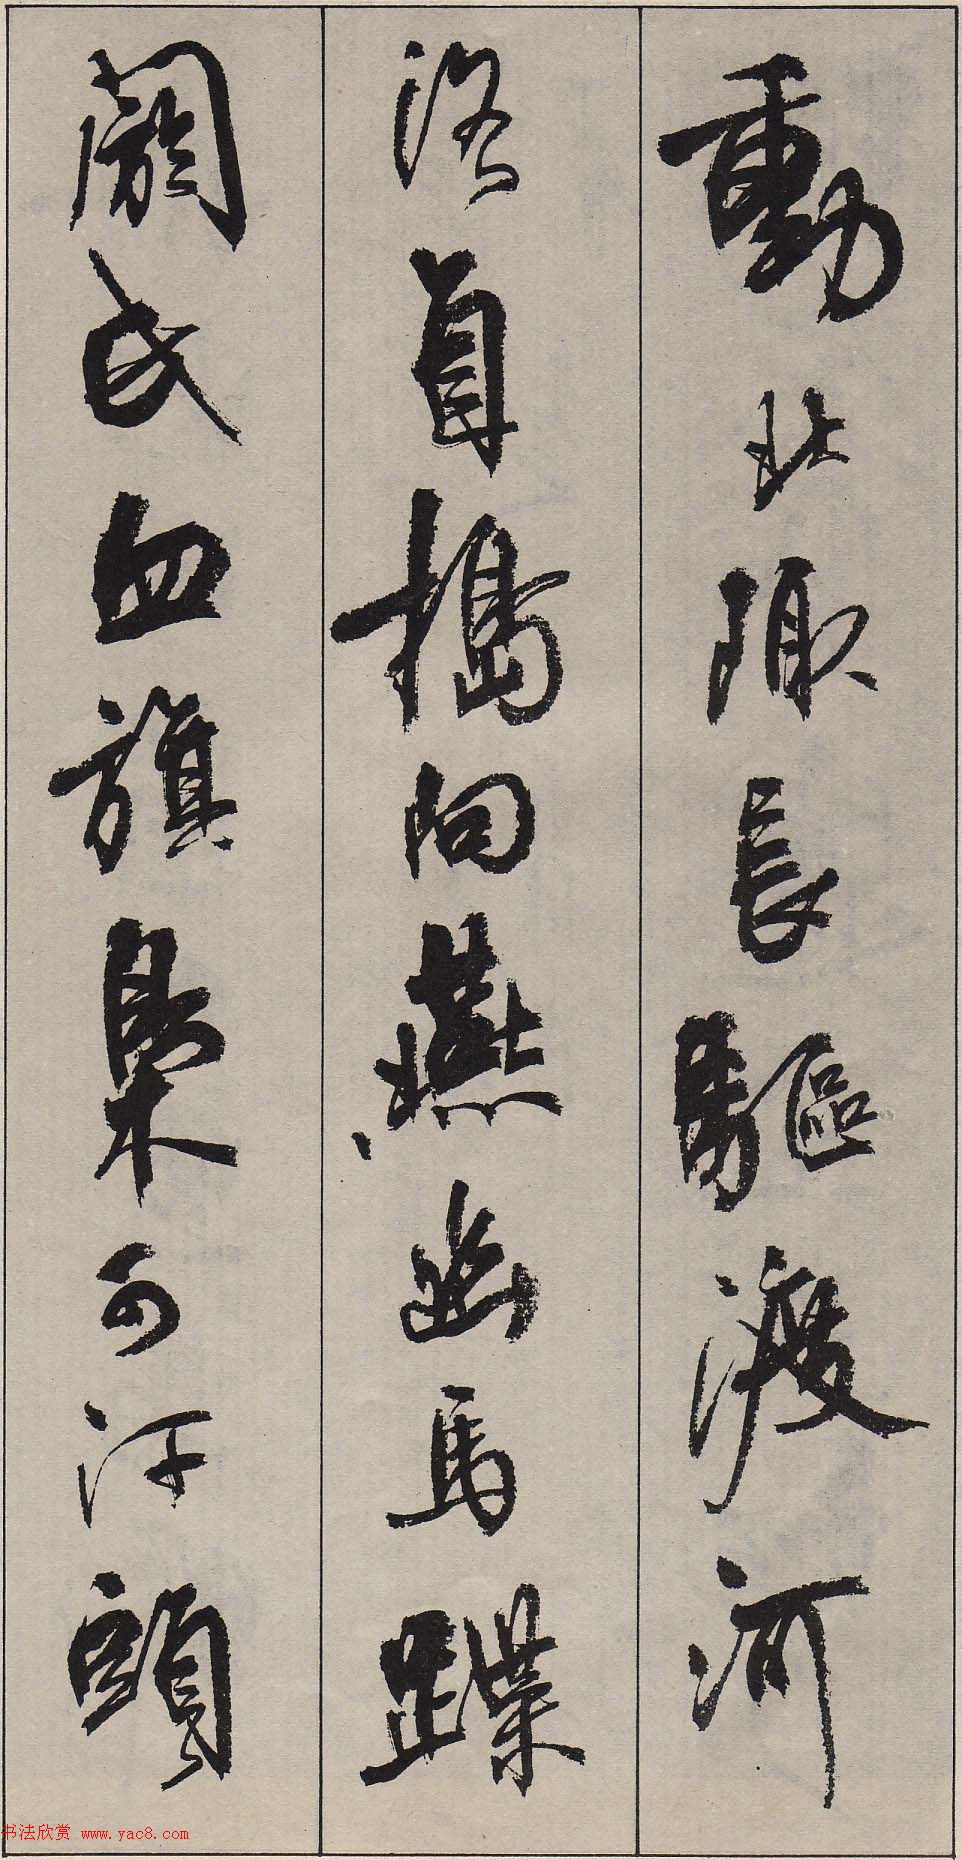 動北陬長驅渡河
洛直擣向燕幽馬蹀
閼氏血旗梟可汗頭
书法欣赏 www.yac8.com